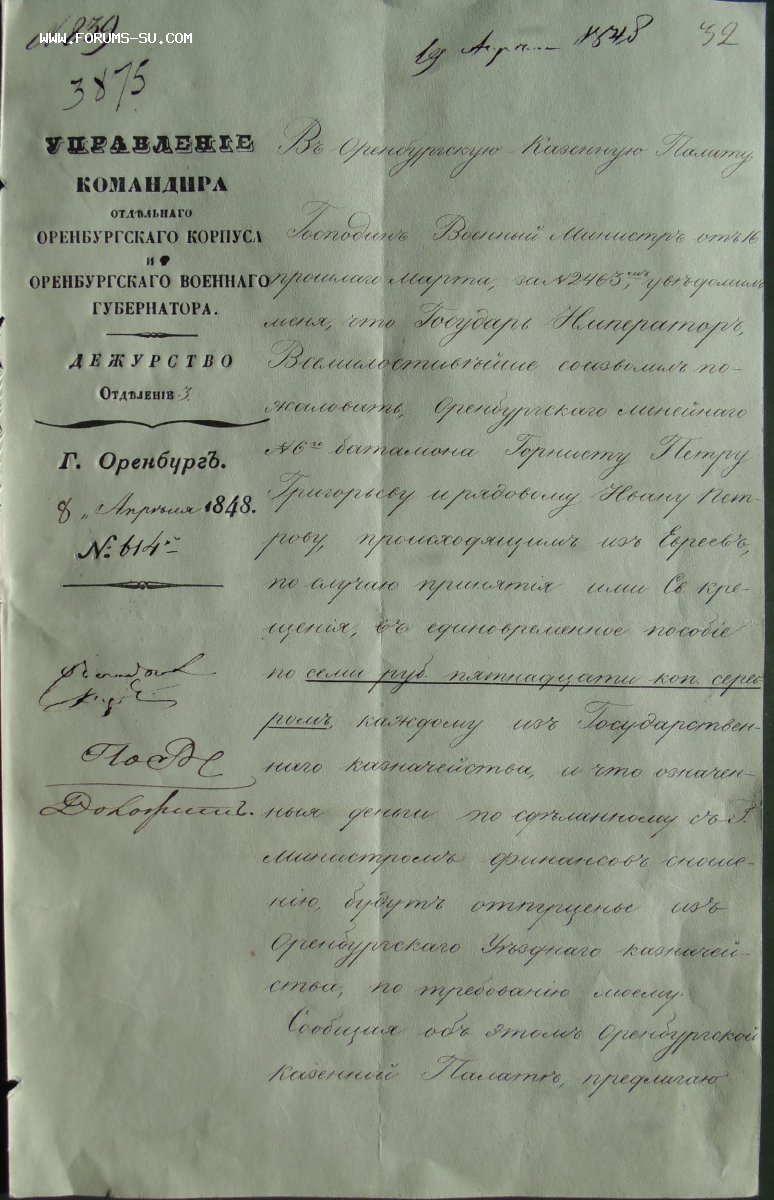 № 839
WWW.FORUMS-SU.COM
19 Апр 1848
32
3875
УПРАВЛЕНІЕ
КОМАНДИРА
ОТДѢЛЬНАГО
ОРЕНБУРГСКАГО КОРПУСА
И
ОРЕНБУРГСКАГО ВОЕННАГО
ГУБЕРНАТОРА.
ДЕЖУРСТВО
Отдѣленіе 3.
Г. Оренбургъ.
8 „ Апрѣля 1848.
№ 614
Въ Оренбургскую Казенную Палату.
Господинъ Военный Министръ отъ 16
прошлаго Марта, за № 2463, увѣдомилъ
меня, что Государь Императоръ,
Всемилостивѣйше соизволилъ по-
жаловать, Оренбургскаго линейнаго
№ 6го баталіона Горнисту Петру
Григорьеву и рядовому Ивану Пет-
рову, происходящимъ изъ Евреевъ,
по случаю принятія ими Св. кре-
щенія, въ единовременное пособіе
по семи руб. пятнадцати коп. сереб-
ромъ, каждому изъ Государствен-
наго казначейства, и что означен-
ныя деньги по сдѣланному съ Г.
Министромъ финансовъ сноше-
нію, будутъ отпущены изъ
Оренбургскаго Уѣзднаго казначей-
ства, по требованію моему.
Сообщая объ этомъ Оренбургской
казенной Палатѣ, предлагаю